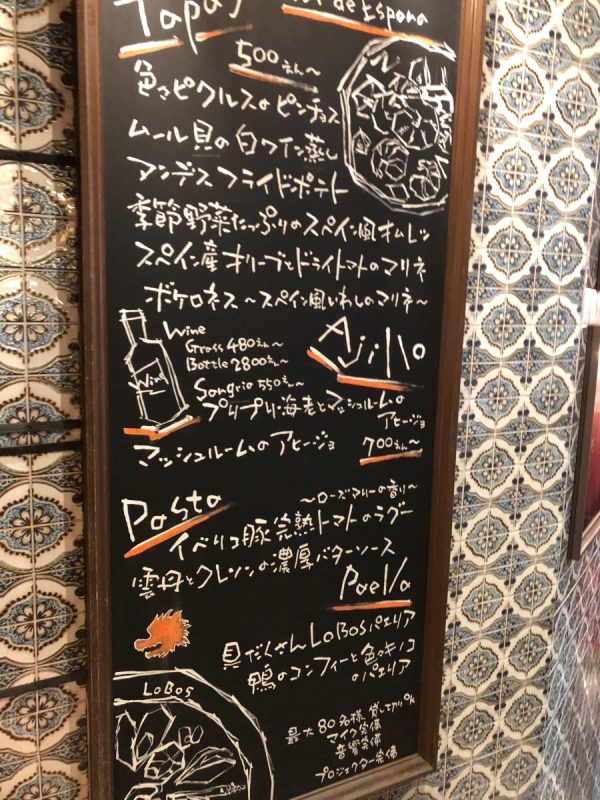 Tapas
de Espana
500えん～
色々ピクルスのピンチョス
ムール貝の白ワイン蒸し
アンデスフライドポテト
季節野菜たっぷりのスペイン風オムレツ
スペイン産オリーブとドライトマトのマリネ
ボケロネス～スペイン風いわしのマリネ～
Wine
Grass 480えん～
Bottle 2800えん～
Sangria 550えん～
Wine
Ajillo
プリプリ海老とマッシュルームの
アヒージョ
マッシュルームのアヒージョ
700えん～
Pasta
～ローズマリーの香り～
イベリコ豚完熟トマトのラグー
雲丹とクレソンの濃厚バターソース
Paella
具だくさんLoBosパエリア
鴨のコンフィーと色々キノコ
のパエリア
LoBos
最大80名様貸し切りOK
マイク完備
音響完備
プロジェクター完備